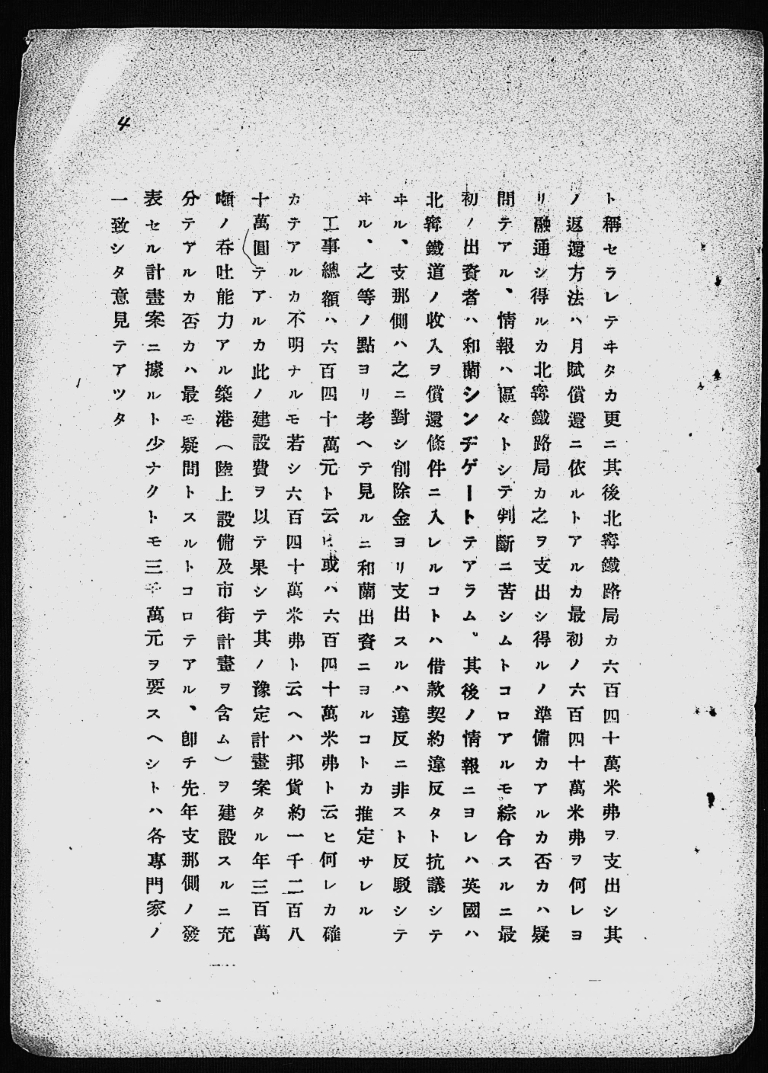 4
ト稱セラレテヰタカ更ニ其後北寗鐵路局カ六百四十萬米弗ヲ支出シ其
ノ返還方法ハ月賦償還ニ依ルトアルカ最初ノ六百四十萬米弗ヲ何レヨ
リ融通シ得ルカ北寗鐵路局カ之ヲ支出シ得ルノ準備カアルカ否カハ疑
問テアル、情報ハ區々トシテ判斷ニ苦シムトコロアルモ綜合スルニ最
初ノ出資者ハ和蘭シンヂゲートテアラム。其後ノ情報ニヨレハ英國ハ
北寗鐵道ノ收入ヲ償還條件ニ入レルコトハ借款契約違反タト抗議シテ
ヰル、支那側ハ之ニ對シ削除金ヨリ支出スルハ違反ニ非スト反駁シテ
ヰル、之等ノ點ヨリ考ヘテ見ルニ和蘭出資ニヨルコトカ推定サレル
工事總額ハ六百四十萬元ト云ヒ或ハ六百四十萬米弗ト云ヒ何レカ確
カテアルカ不明ナルモ若シ六百四十萬米弗ト云ヘハ邦貨約一千二百八
十萬圓テアルカ此ノ建設費ヲ以テ果シテ其ノ豫定計畫案タル年三百萬
噸ノ呑吐能力アル築港（陸上設備及市街計畫ヲ含ム）ヲ建設スルニ充
分テアルカ否カハ最モ疑問トスルトコロテアル、卽チ先年支那側ノ發
表セル計畫案ニ據ルト少ナクトモ三千萬元ヲ要スヘシトハ各專門家ノ
一致シタ意見テアツタ